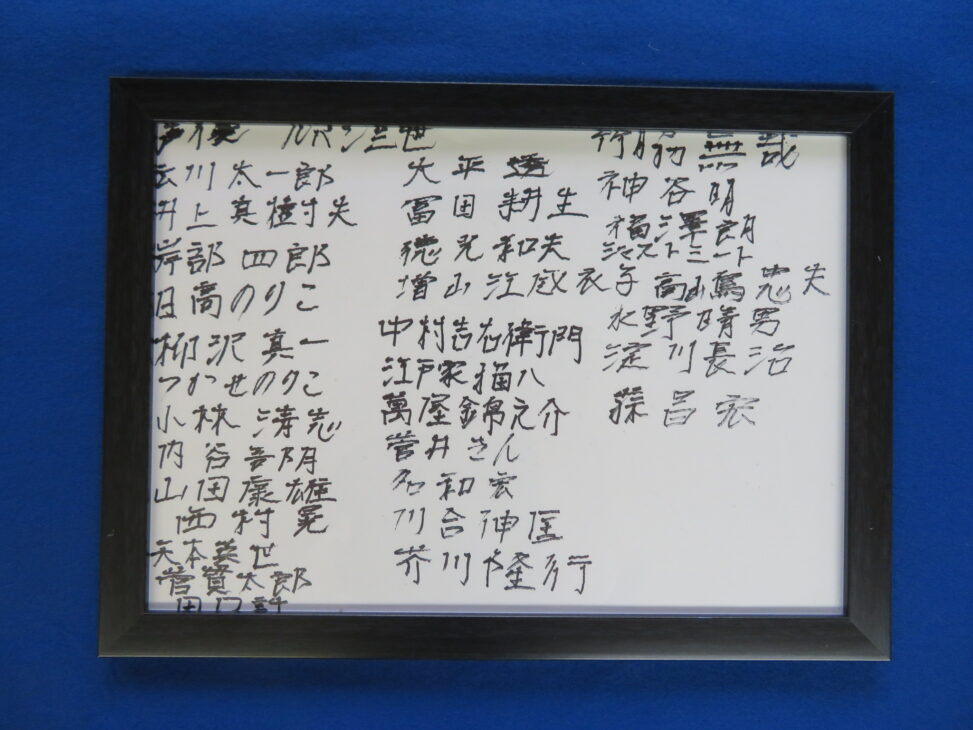 声優 ルパン三世
広川太一郎
井上真樹夫
岸部四郎
日高のりこ
柳沢真一
つかせのりこ
小林清志
内谷吾朗
山田康雄
西村晃
矢本英世
菅貫太郎
田口計
大平透
富田耕生
徳光和夫
増山江威衣子
中村吉右衛門
江戸家猫八
萬屋錦之介
菅井きん
名和宏
川合伸匡
芥川隆行
竹脇無哉
神谷明
福澤朗
ジャストミート
高嶌忠夫
水野晴男
淀川長治
孫昌宏